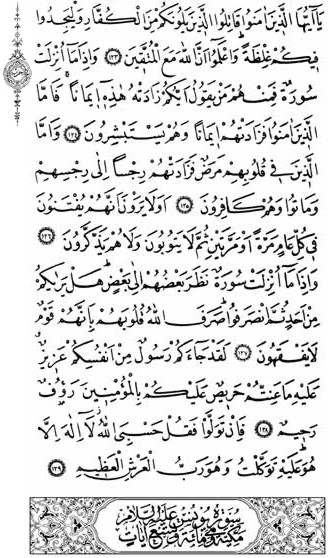 يَا أَيُّهَا الَّذِينَ اٰمَنُوا قَاتِلُوا الَّذِينَ يَلُونَكُمْ مِنَ الْكُفَّارِ وَلْيَجِدُوا
فِيكُمْ غِلْظَةً وَاعْلَمُوا أَنَّ اللّٰهَ مَعَ الْمُتَّقِينَ ﴿١٢٣﴾ وَإِذَا مَا أُنْزِلَتْ
سُورَةٌ فَمِنْهُمْ مَنْ يَقُولُ أَيُّكُمْ زَادَتْهُ هٰذِهِ إِيمَانًا فَأَمَّا
الَّذِينَ اٰمَنُوا فَزَادَتْهُمْ إِيمَانًا وَهُمْ يَسْتَبْشِرُونَ ﴿١٢٤﴾ وَأَمَّا
الَّذِينَ فِي قُلُوبِهِمْ مَرَضٌ فَزَادَتْهُمْ رِجْسًا إِلَى رِجْسِهِمْ
وَمَاتُوا وَهُمْ كَافِرُونَ ﴿١٢٥﴾ أَوَلَا يَرَوْنَ أَنَّهُمْ يُفْتَنُونَ
فِي كُلِّ عَامٍ مَرَّةً أَوْ مَرَّتَيْنِ ثُمَّ لَا يَتُوبُونَ وَلَا هُمْ يَذَّكَّرُونَ ﴿١٢٦﴾
وَإِذَا مَا أُنْزِلَتْ سُورَةٌ نَظَرَ بَعْضُهُمْ إِلَى بَعْضٍ هَلْ يَرٰيكُمْ
مِنْ أَحَدٍ ثُمَّ انْصَرَفُوا صَرَفَ اللّٰهُ قُلُوبَهُمْ بِأَنَّهُمْ قَوْمٌ
لَا يَفْقَهُونَ ﴿١٢٧﴾ لَقَدْ جَاءَكُمْ رَسُولٌ مِنْ أَنْفُسِكُمْ عَزِيزٌ
عَلَيْهِ مَا عَنِتُّمْ حَرِيصٌ عَلَيْكُمْ بِالْمُؤْمِنِينَ رَؤُفٌ
رَحِيمٌ ﴿١٢٨﴾ فَإِنْ تَوَلَّوْا فَقُلْ حَسْبِيَ اللّٰهُ لَا إِلٰهَ إِلَّا
هُوَ عَلَيْهِ تَوَكَّلْتُ وَهُوَ رَبُّ الْعَرْشِ الْعَظِيمِ ﴿١٢٩﴾
سورة يونس عليه السلام
مكية وهي مائة وتسع آيات